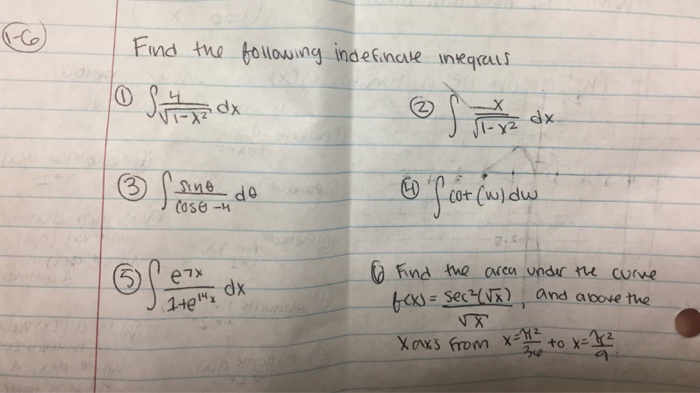 1-6
Find the following indefinate integrals
① ∫ 4/√(1-x²) dx
② ∫ x/√(1-x²) dx
③ ∫ sinθ/(cosθ-4) dθ
④ ∫ cot(w) dw
⑤ ∫ e^(7x)/(1+e^(14x)) dx
⑥ Find the area under the curve
f(x) = sec²(√x)/√x, and above the
x axs from x=π²/36 to x=π²/9.